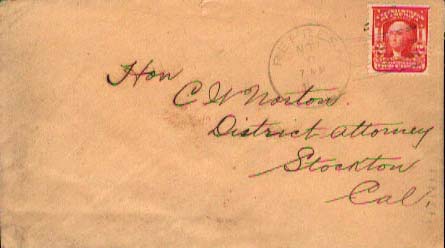 Hon
C W Norton.
District Attorney
Stockton
Cal.